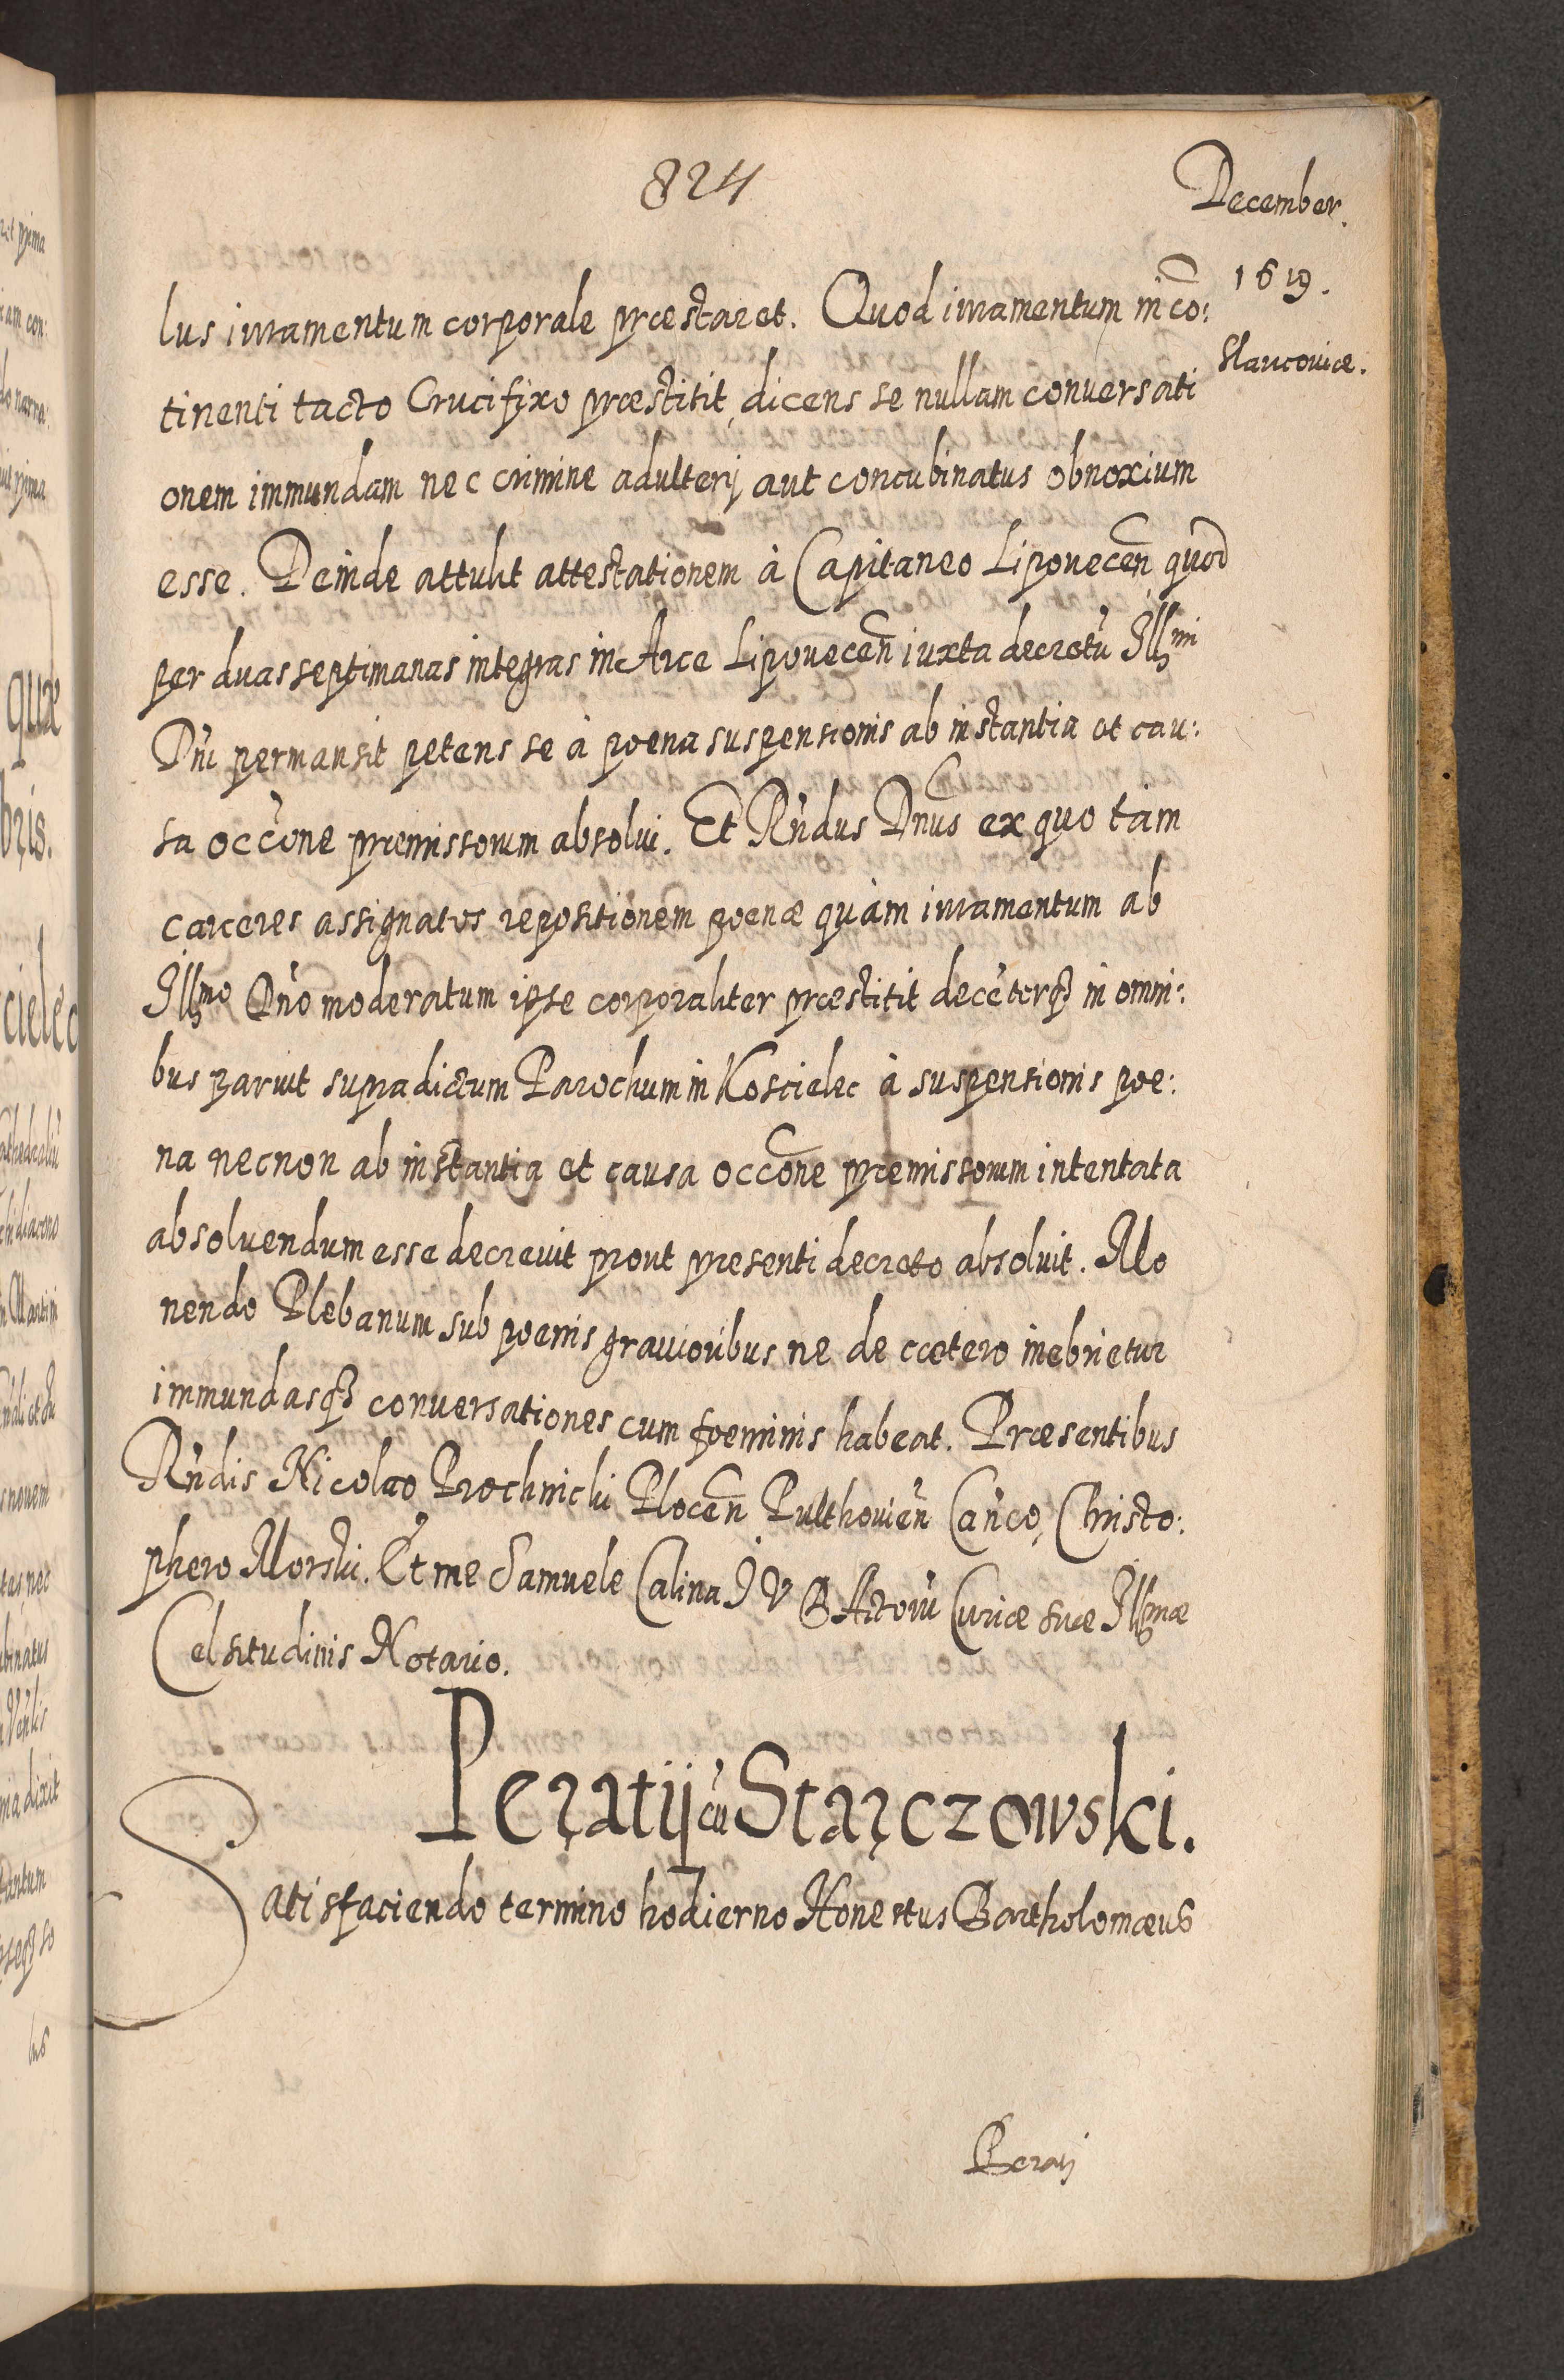 824
December.
1619.
Slavcoviæ.
lus iuramentum corporale præstaret. Quod iuramentum in co:
tinenti tacto Crucifixo præstitit dicens se nullam conuersati
onem immundam nec crimine adulterij aut concubinatus obnoxium
esse. Deinde attulit attestationem à Capitaneo Lipovecen̄ quod
per duas septimanas integras in Arce Lipovecen̄ iuxta decretū Illmi
Dn̄i permansit petens se à poena suspensionis ab instantia et cau:
sa occōne præmissorum absolui. Et Rn̄dus Dn̄us ex quo tam
carceres assignatos repositionem poenæ quàm iuramentum ab
Illmo Dn̄o moderatum ipse corporaliter præstitit decēterq3 in omni:
bus paruit supradictum Parochum in Koscielec à suspensionis poe:
na necnon ab instantia et causa occōne præmissorum intentata
absoluendum esse decreuit prout præsenti decreto absoluit. Mo
nendo Plebanum sub poenis grauioribus ne de cœtero inebrietur
immundasq3 conuersationes cum foeminis habeat. Præsentibus
Rn̄dis Nicolao Prochnichi Plocen̄ Pulthouien̄ Can̄co, Christo:
phero Morski. Et me Samuele Calina J V D Actorū Curiæ suæ Illmæ
Celsitudinis Notario.
Peratij cū Starczowski.
Satisfaciendo termino hodierno Honestus Bartholomæus
Peratij